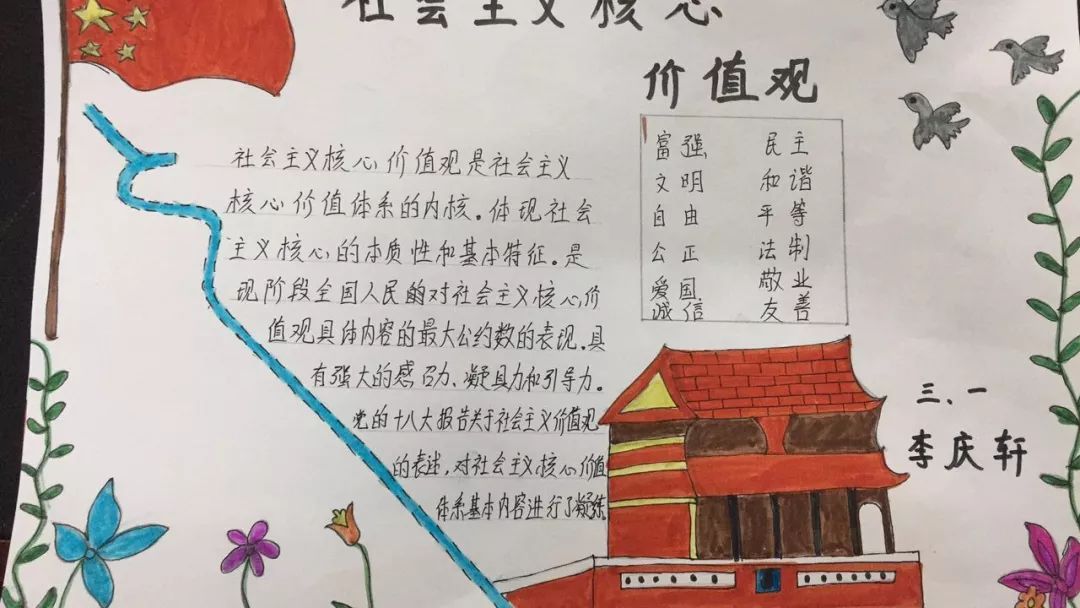 社会主义核心
价值观
社会主义核心价值观是社会主义
核心价值体系的内核。体现社会
主义核心的本质性和基本特征。是
现阶段全国人民的对社会主义核心价
值观具体内容的最大公约数的表现。具
有强大的感召力、凝具力和引导力。
党的十八大报告关于社会主义价值观
的表述,对社会主义核心价值
体系基本内容进行了凝练
富强 民主
文明 和谐
自由 平等
公正 法制
爱国 敬业
诚信 友善
三.一
李庆轩